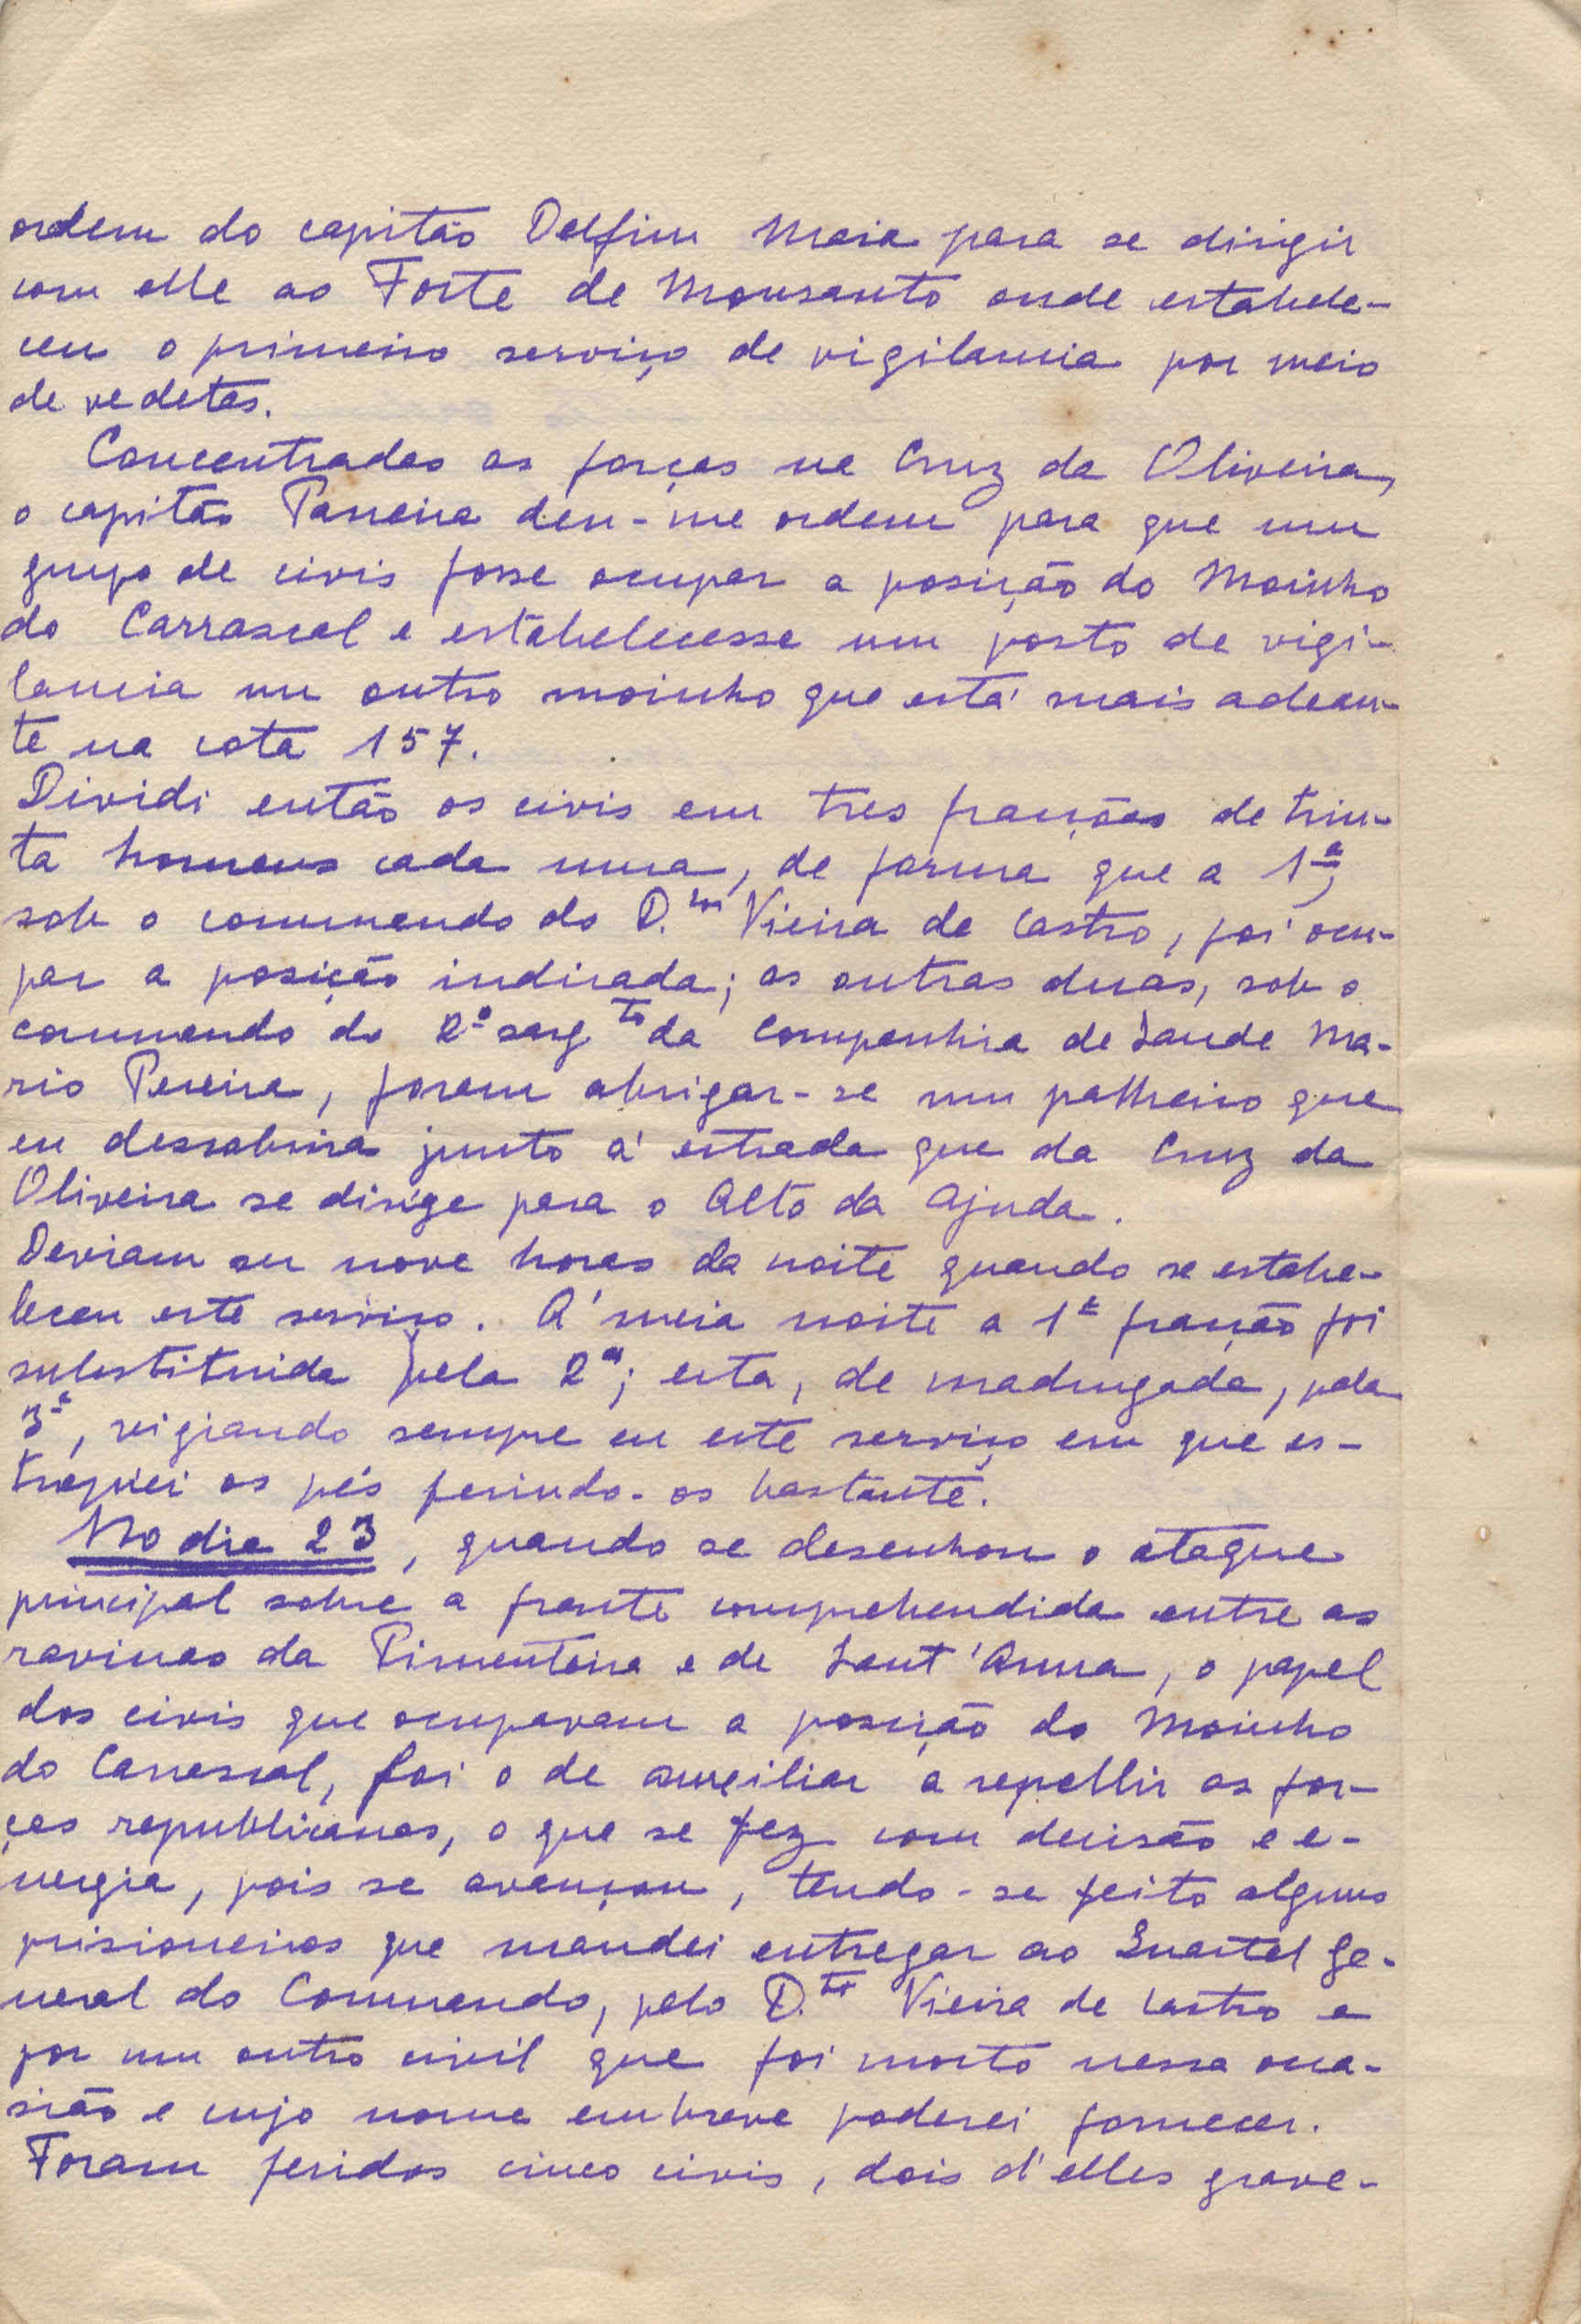 ordem do capitão Delfim Maia para se dirigir
com elle ao Forte de Monsanto onde estabele-
ceu o primeiro serviço de vigilancia por meio
de vedetas.
Concentradas as forças na Cruz da Oliveira,
o capitão Parreira deu-me ordem para que um
grupo de civis fosse ocupar a posição do Moinho
do Carrascal e estabelecesse um posto de vigi-
lancia num outro moinho que está mais adean-
te na cota 157.
Dividi então os civis em tres fracções de trin-
ta homens cada uma, de forma que a 1ª,
sob o commando do D.tor Vieira de Castro, foi ocu-
par a posição indicada; as outras duas, sob o
commando do 2º sarg.to da Companhia de Saude Ma-
rio Pereira, foram abrigar-se num palheiro que
eu descobrira junto á estrada que da Cruz da
Oliveira se dirige para o Alto da Ajuda.
Deviam ser nove horas da noite quando se estabe-
leceu este serviço. Á meia noite a 1ª fracção foi
substituida pela 2ª; esta, de madrugada, pela
3ª, vigiando sempre eu este serviço em que es-
tropiei os pés ferindo-os bastante.
No dia 23, quando se desenhou o ataque
principal sobre a frente comprehendida entre as
ravinas da Pimenteira e de Sant'Anna, o papel
dos civis que ocupavam a posição do Moinho
do Carrascal, foi o de auxiliar a repellir as for-
ças republicanas, o que se fez com decisão e e-
nergia, pois se avançou, tendo-se feito alguns
prisioneiros que mandei entregar ao Quartel Ge-
neral do Commando, pelo D.tor Vieira de Castro e
por um outro civil que foi morto nessa oca-
sião e cujo nome em breve poderei fornecer.
Foram feridos cinco civis, dois d'elles grave-